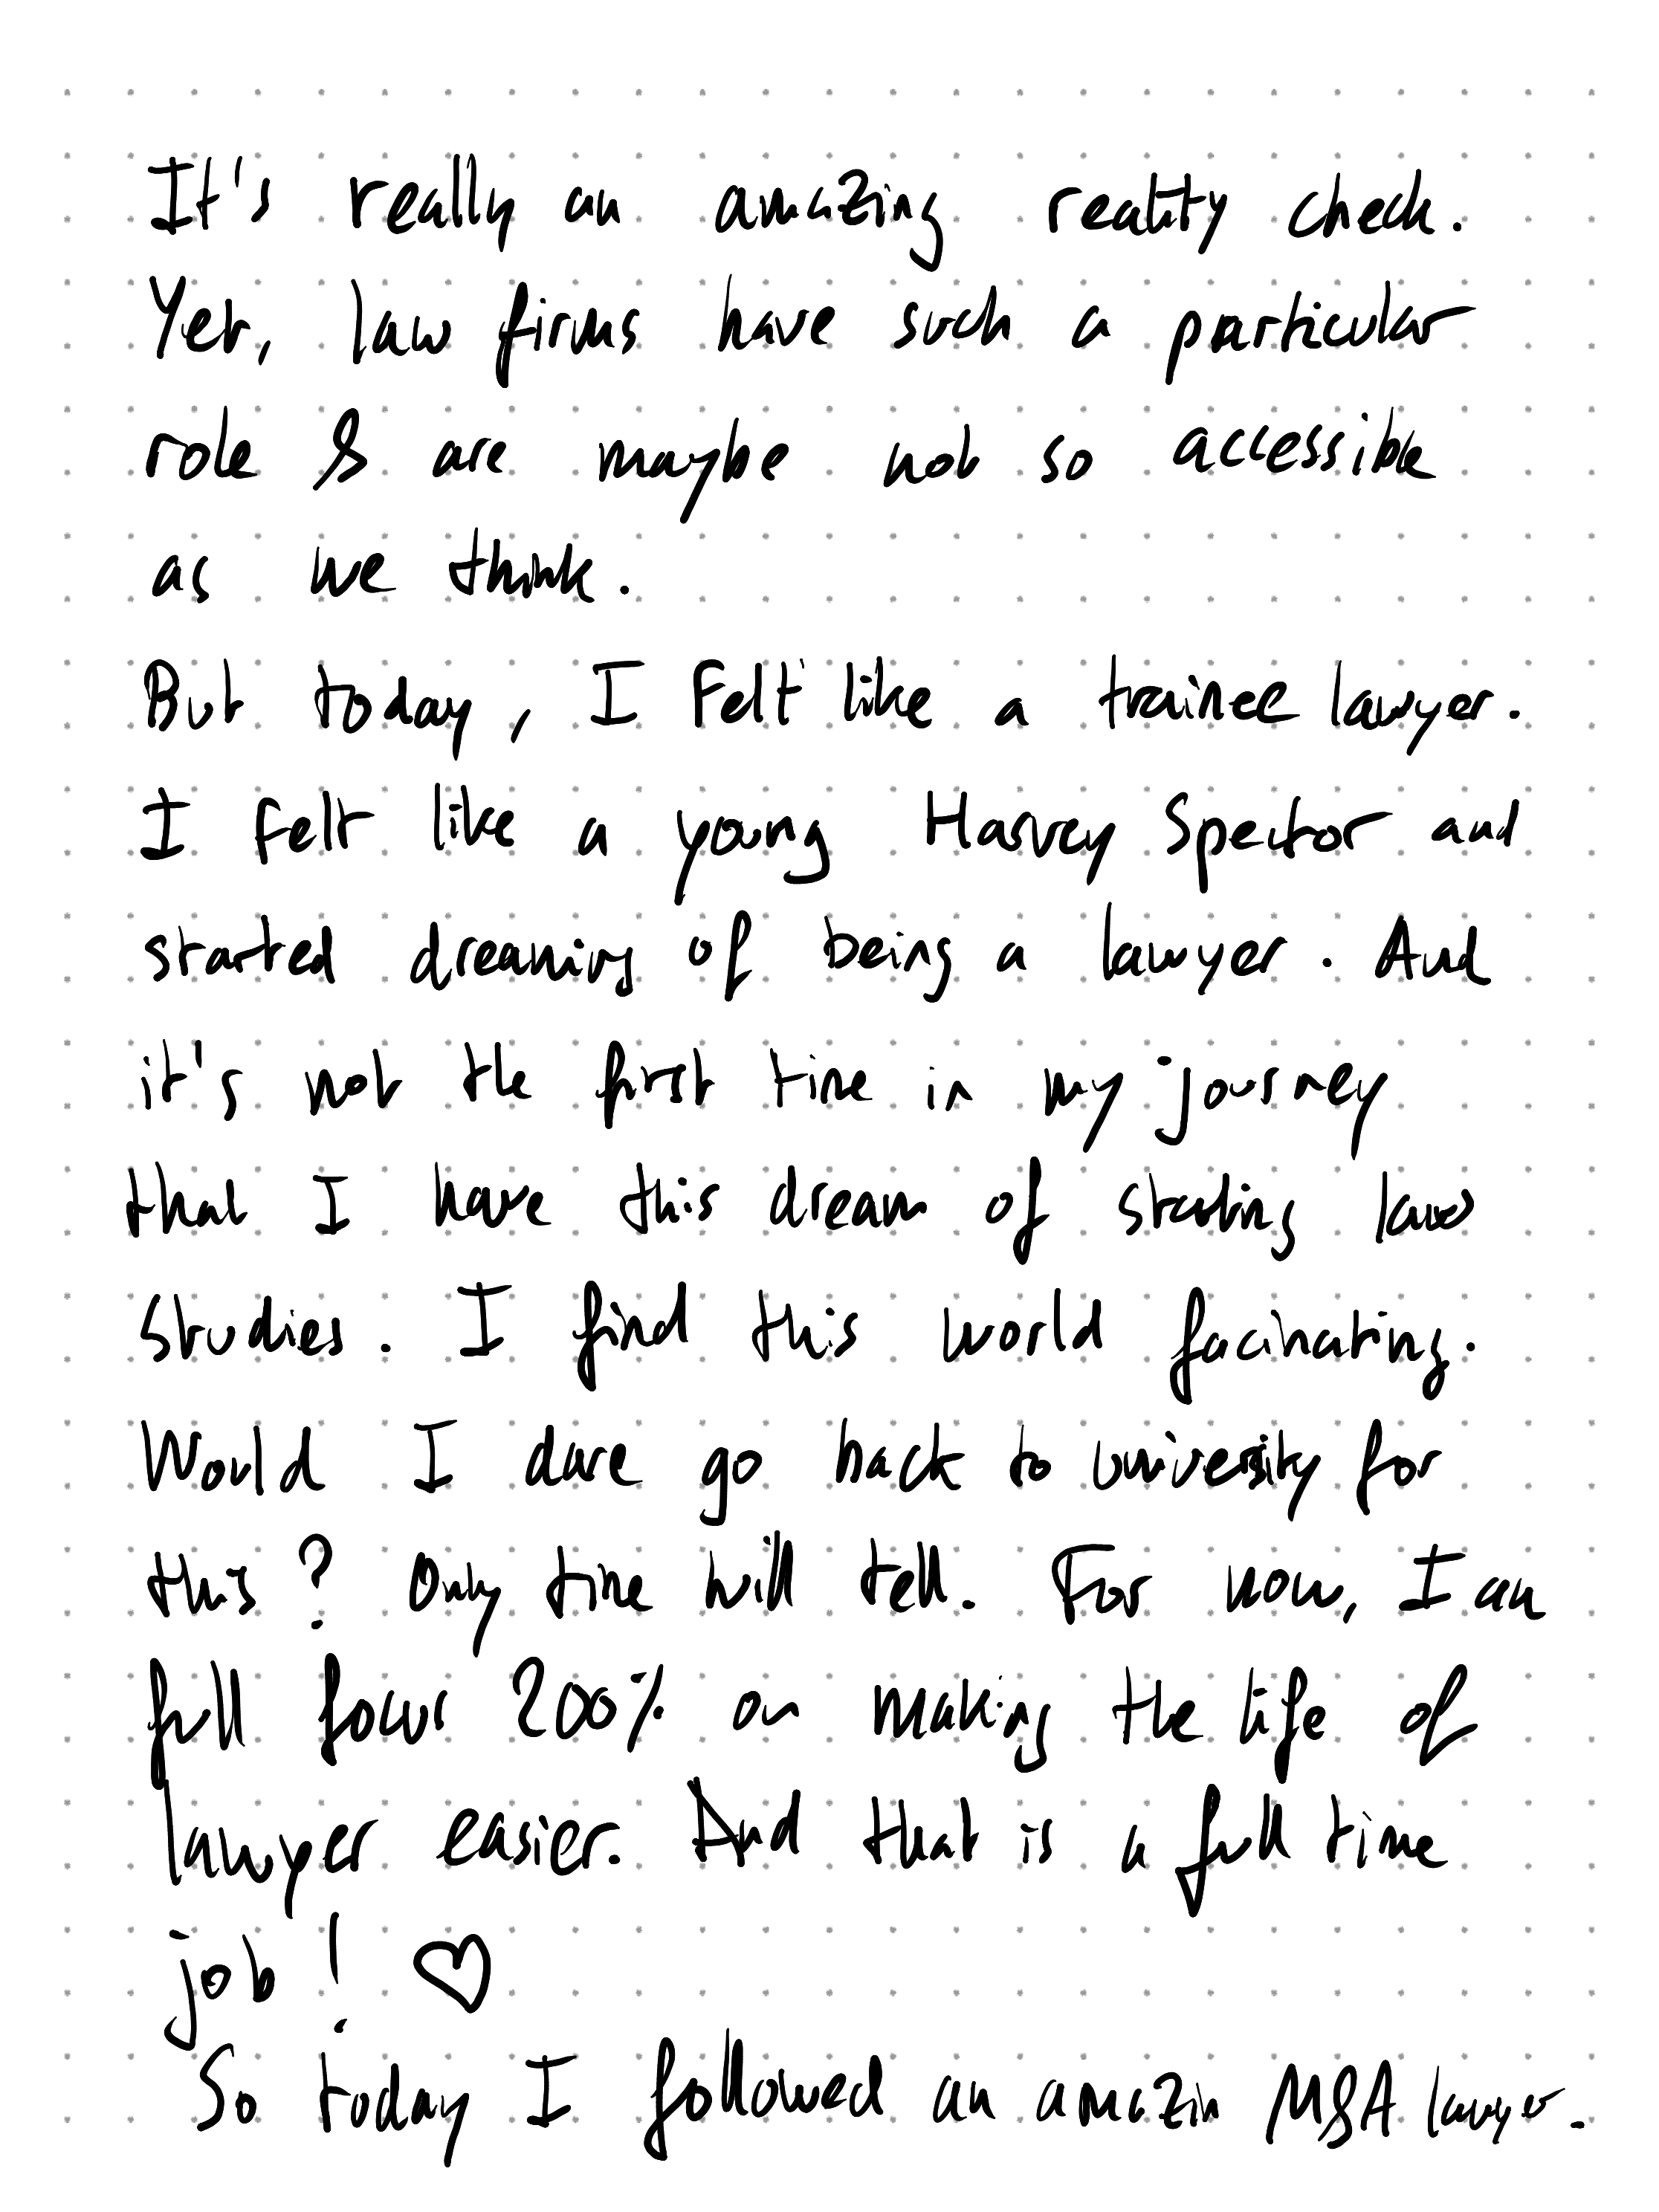 It's really an amazing reality check.
Yet, law firms have such a particular
role & are maybe not so accessible
as we think.
But today, I felt like a trainee lawyer.
I felt like a young Harvey Spector and
started dreaming of being a lawyer. And
it's not the first time in my journey
that I have this dream of starting law
studies. I find this world facinating.
Would I dare go back to university for
this? Only time will tell. For now, I am
full focus 200% on making the life of
lawyer easier. And that is a full time
job! ♡
So today I followed an amazin M&A lawyer.